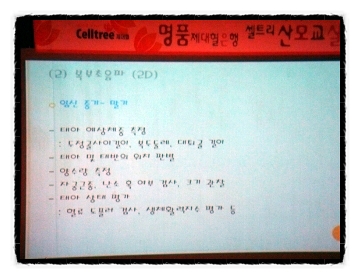 Celltree 셀트리 명품제대혈은행 셀트리 산모교실
(2) 복부초음파 (2D)
임신 중기~ 말기
- 태아 예상체중 측정
: 두정골사이길이, 복부둘레, 대퇴골 길이
- 태아 및 태반의 위치 판별
- 양수량 측정
- 자궁근종, 난소 혹 여부 검사, 크기 관찰
- 태아 상태 평가
: 혈류 도플러 검사, 생체활력지수 평가 등